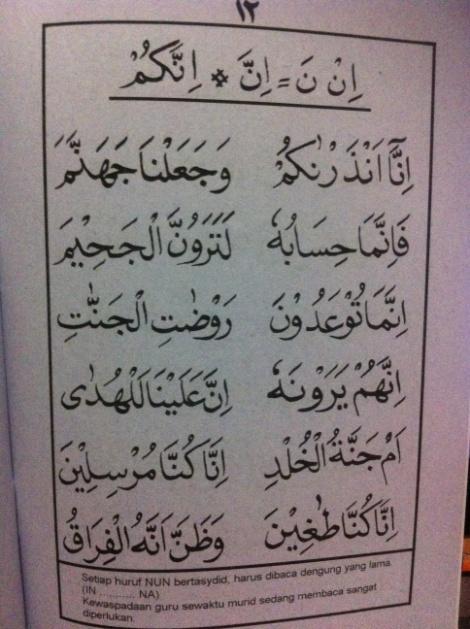 ١٢
اِنْ نَ = اِنَّ * اِنَّكُمْ
اِنَّآ اَنْذَرْنٰكُمْ وَجَعَلْنَا جَهَنَّمَ
فَاِنَّمَا حِسَابُهٗ لَتَرَوُنَّ الْجَحِيْمَ
اِنَّمَا تُوْعَدُوْنَ رَوْضٰتِ الْجَنّٰتِ
اِنَّهُمْ يَرَوْنَهٗ اِنَّ عَلَيْنَا لَلْهُدٰى
اَمْ جَنَّةُ الْخُلْدِ اِنَّا كُنَّا مُرْسِلِيْنَ
اِنَّا كُنَّا طٰغِيْنَ وَظَنَّ اَنَّهُ الْفِرَاقُ
Setiap huruf NUN bertasydid, harus dibaca dengung yang lama.
(IN .......... NA)
Kewaspadaan guru sewaktu murid sedang membaca sangat
diperlukan.